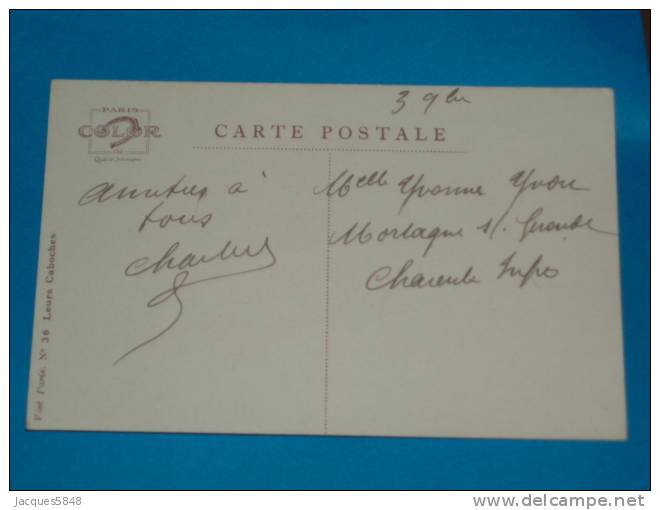 3 9bre
PARIS
COLOR
CARTE POSTALE
Amitiés à
tous
Charles
Melle Yvonne Yvon
Mortagne s/ Gironde
Charente Infre
N° 36 Leurs Caboches
Jacques5848
delcampe.net